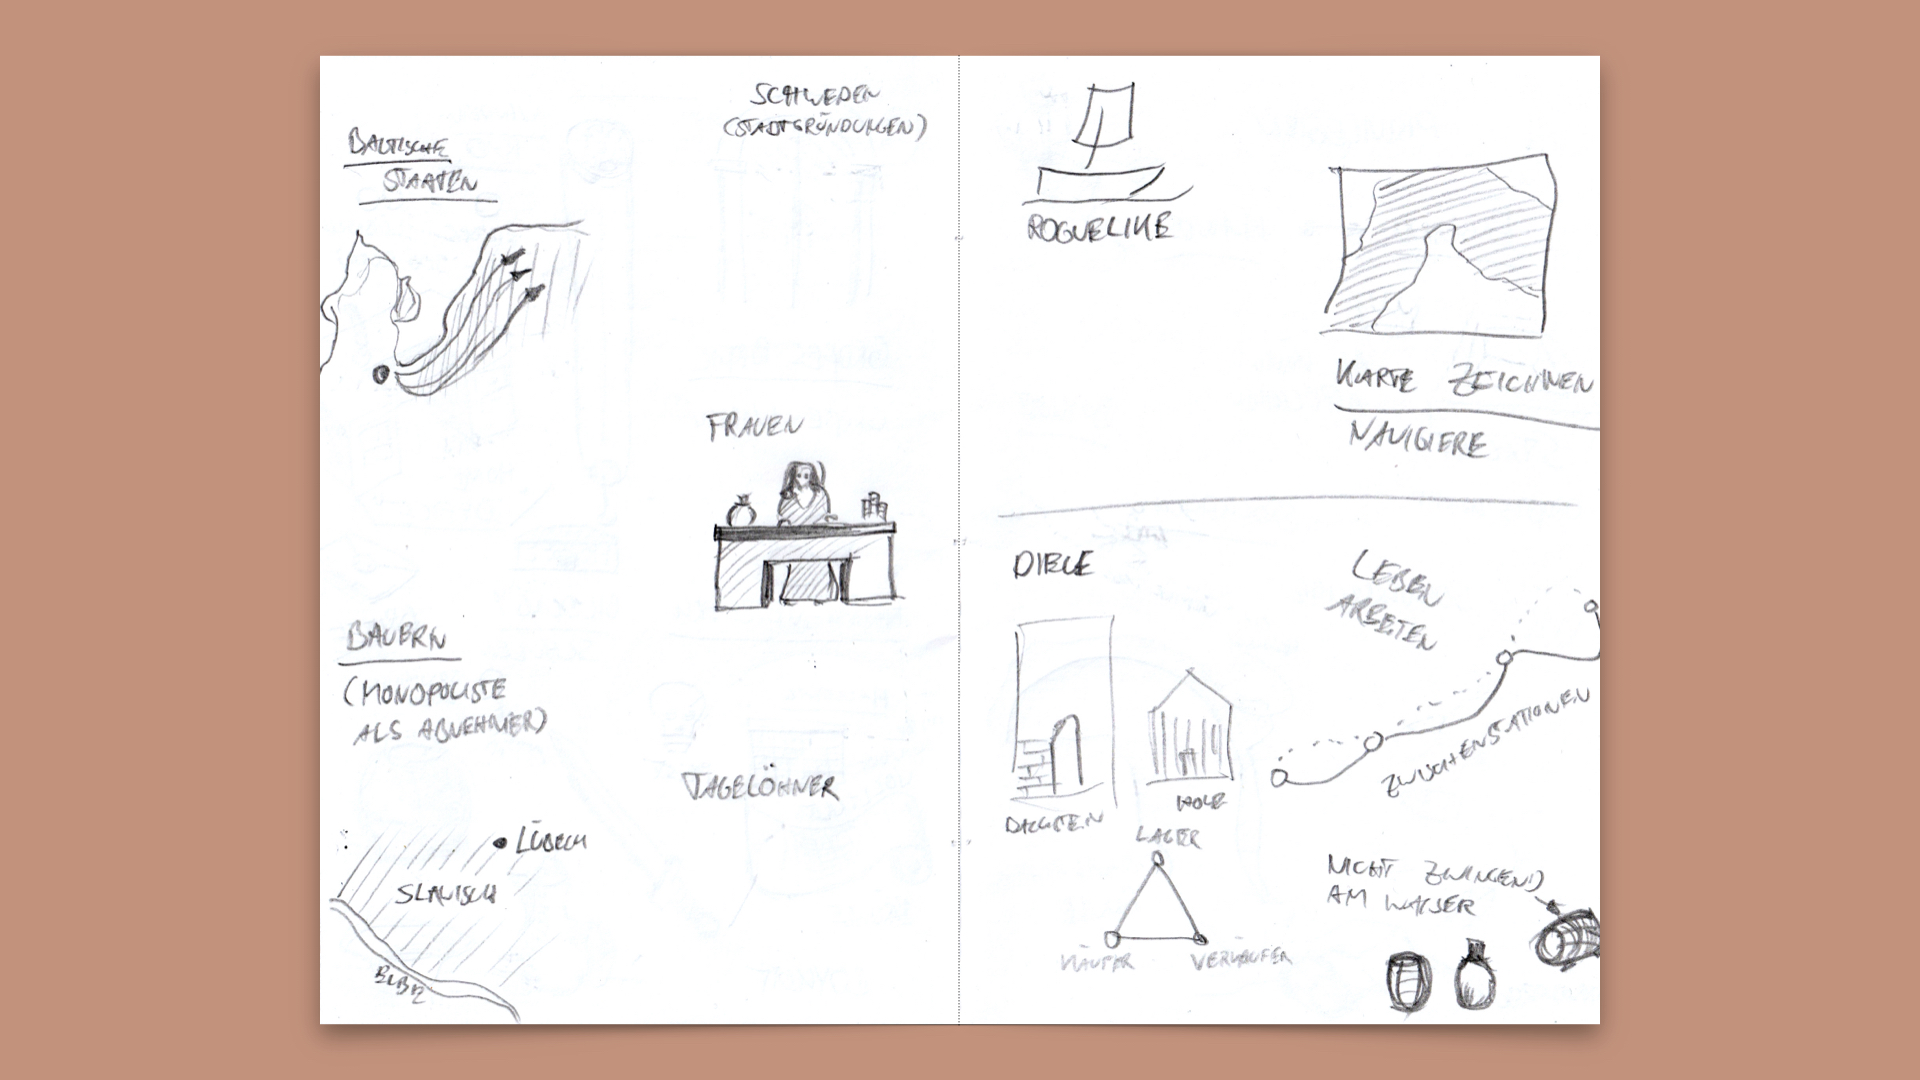 BALTISCHE
STAATEN
SCHWEDEN
(STADTGRÜNDUNGEN)
FRAUEN
BAUERN
(MONOPOLISTE
ALS ABNEHMER)
TAGELÖHNER
LÜBECK
SLAWISCH
ELBE
ROGUELIKE
KARTE ZEICHNEN
NAVIGIERE
DIELE
LEBEN
ARBEITEN
ZWISCHENSTATIONEN
BACKSTEIN
HOLZ
LAGER
KÄUFER
VERKÄUFER
NICHT ZWINGEND
AM WASSER